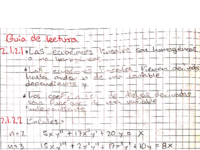 Guía de lectura
2.1.2.1 • Las ecuaciones lineales son homogéneas
o no homogéneas
• Las ecuaciones lineales tienen derivadas
hasta orden n de una variable
dependiente y
• Los coeficientes de las derivadas
son funciones de una variable
independiente
2.1.2.2 Lineales:
n=2 5xy'' + 17x²y' + 20y = x
n=3 15xy''' + 2x²y'' + 17x³y' + 10y = 8x